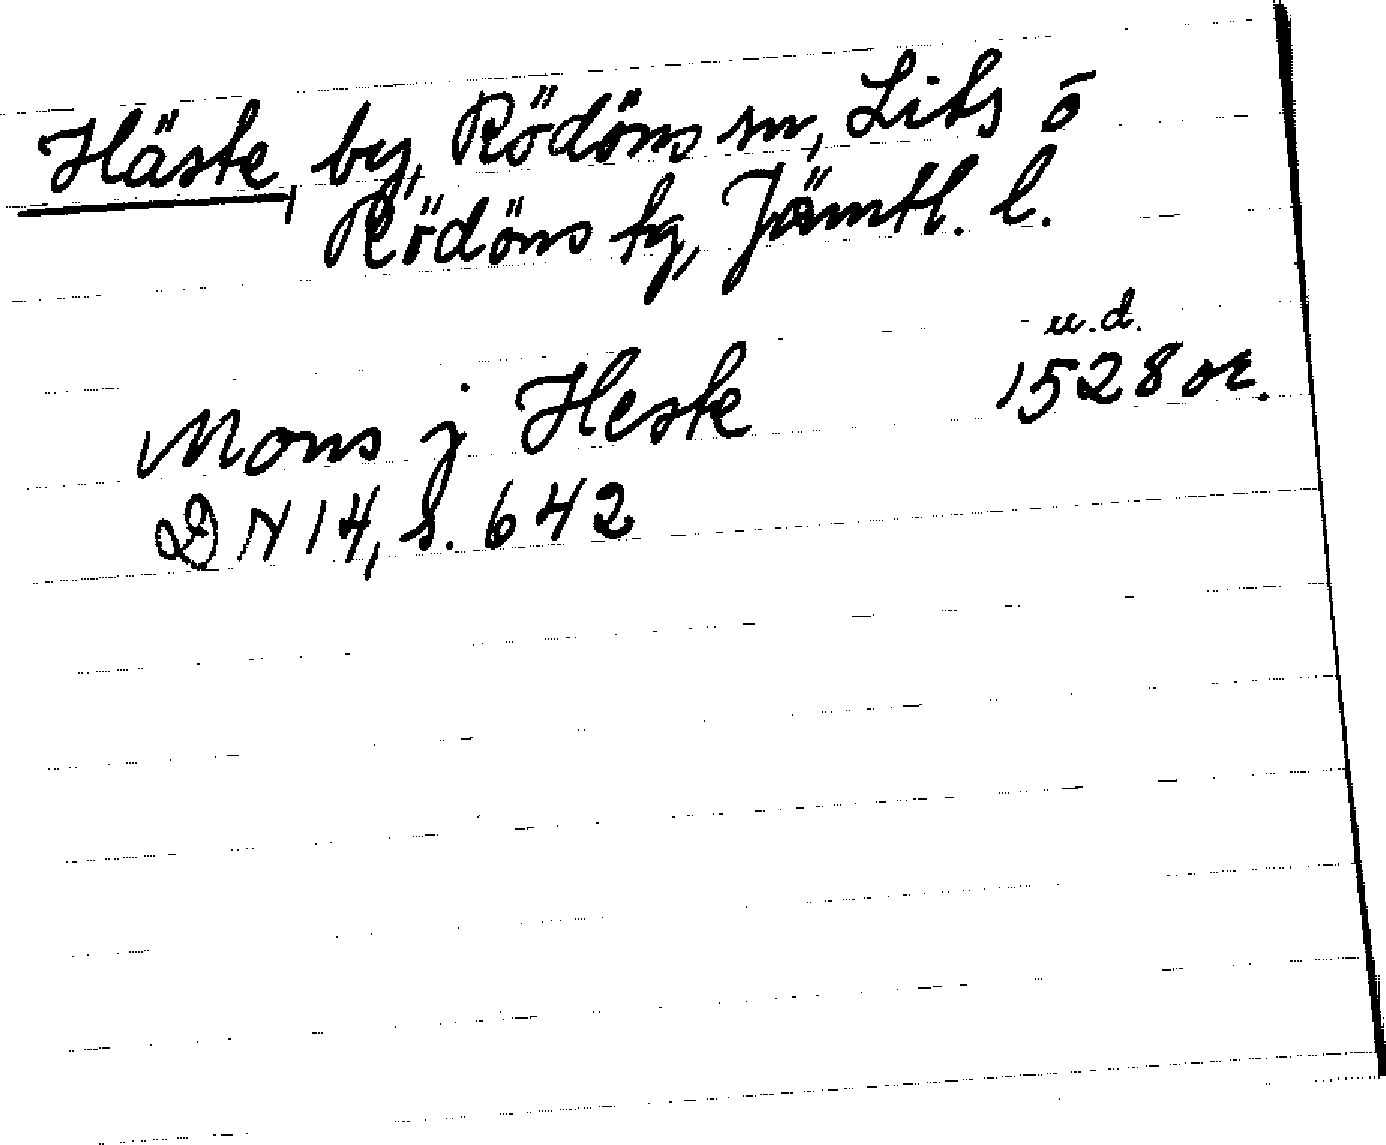 Häste, by, Rödöns sn, Lits o
Rödöns tg, Jämtl. l.
u.d.
Mons j Heste 1528 or.
DN 14, s. 642